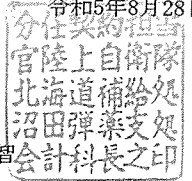 令和5年8月28
分任契約担当
官陸上自衛隊
北海道補給処
沼田弾薬支処
会計科長之印